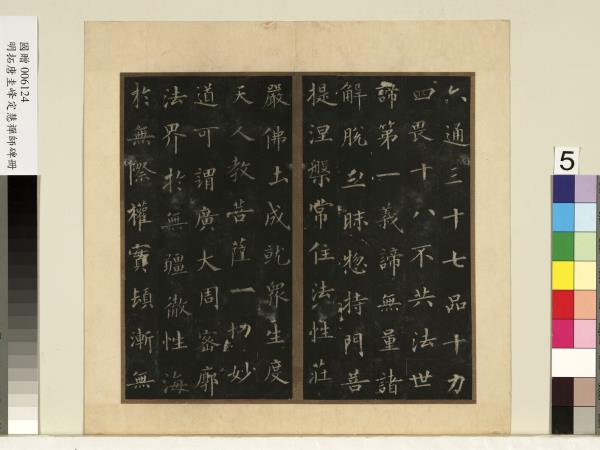 六通三十七品十力
四畏十八不共法世
諦第一義諦無量諸
解脫三昧惣持門菩
提涅槃常住法性莊
嚴佛土成就衆生度
天人教菩薩一切妙
道可謂廣大周密廓
法界於無疆徹性海
於無際權實頓漸無
國贈 006124
明拓唐圭峰定慧禪師碑冊
5